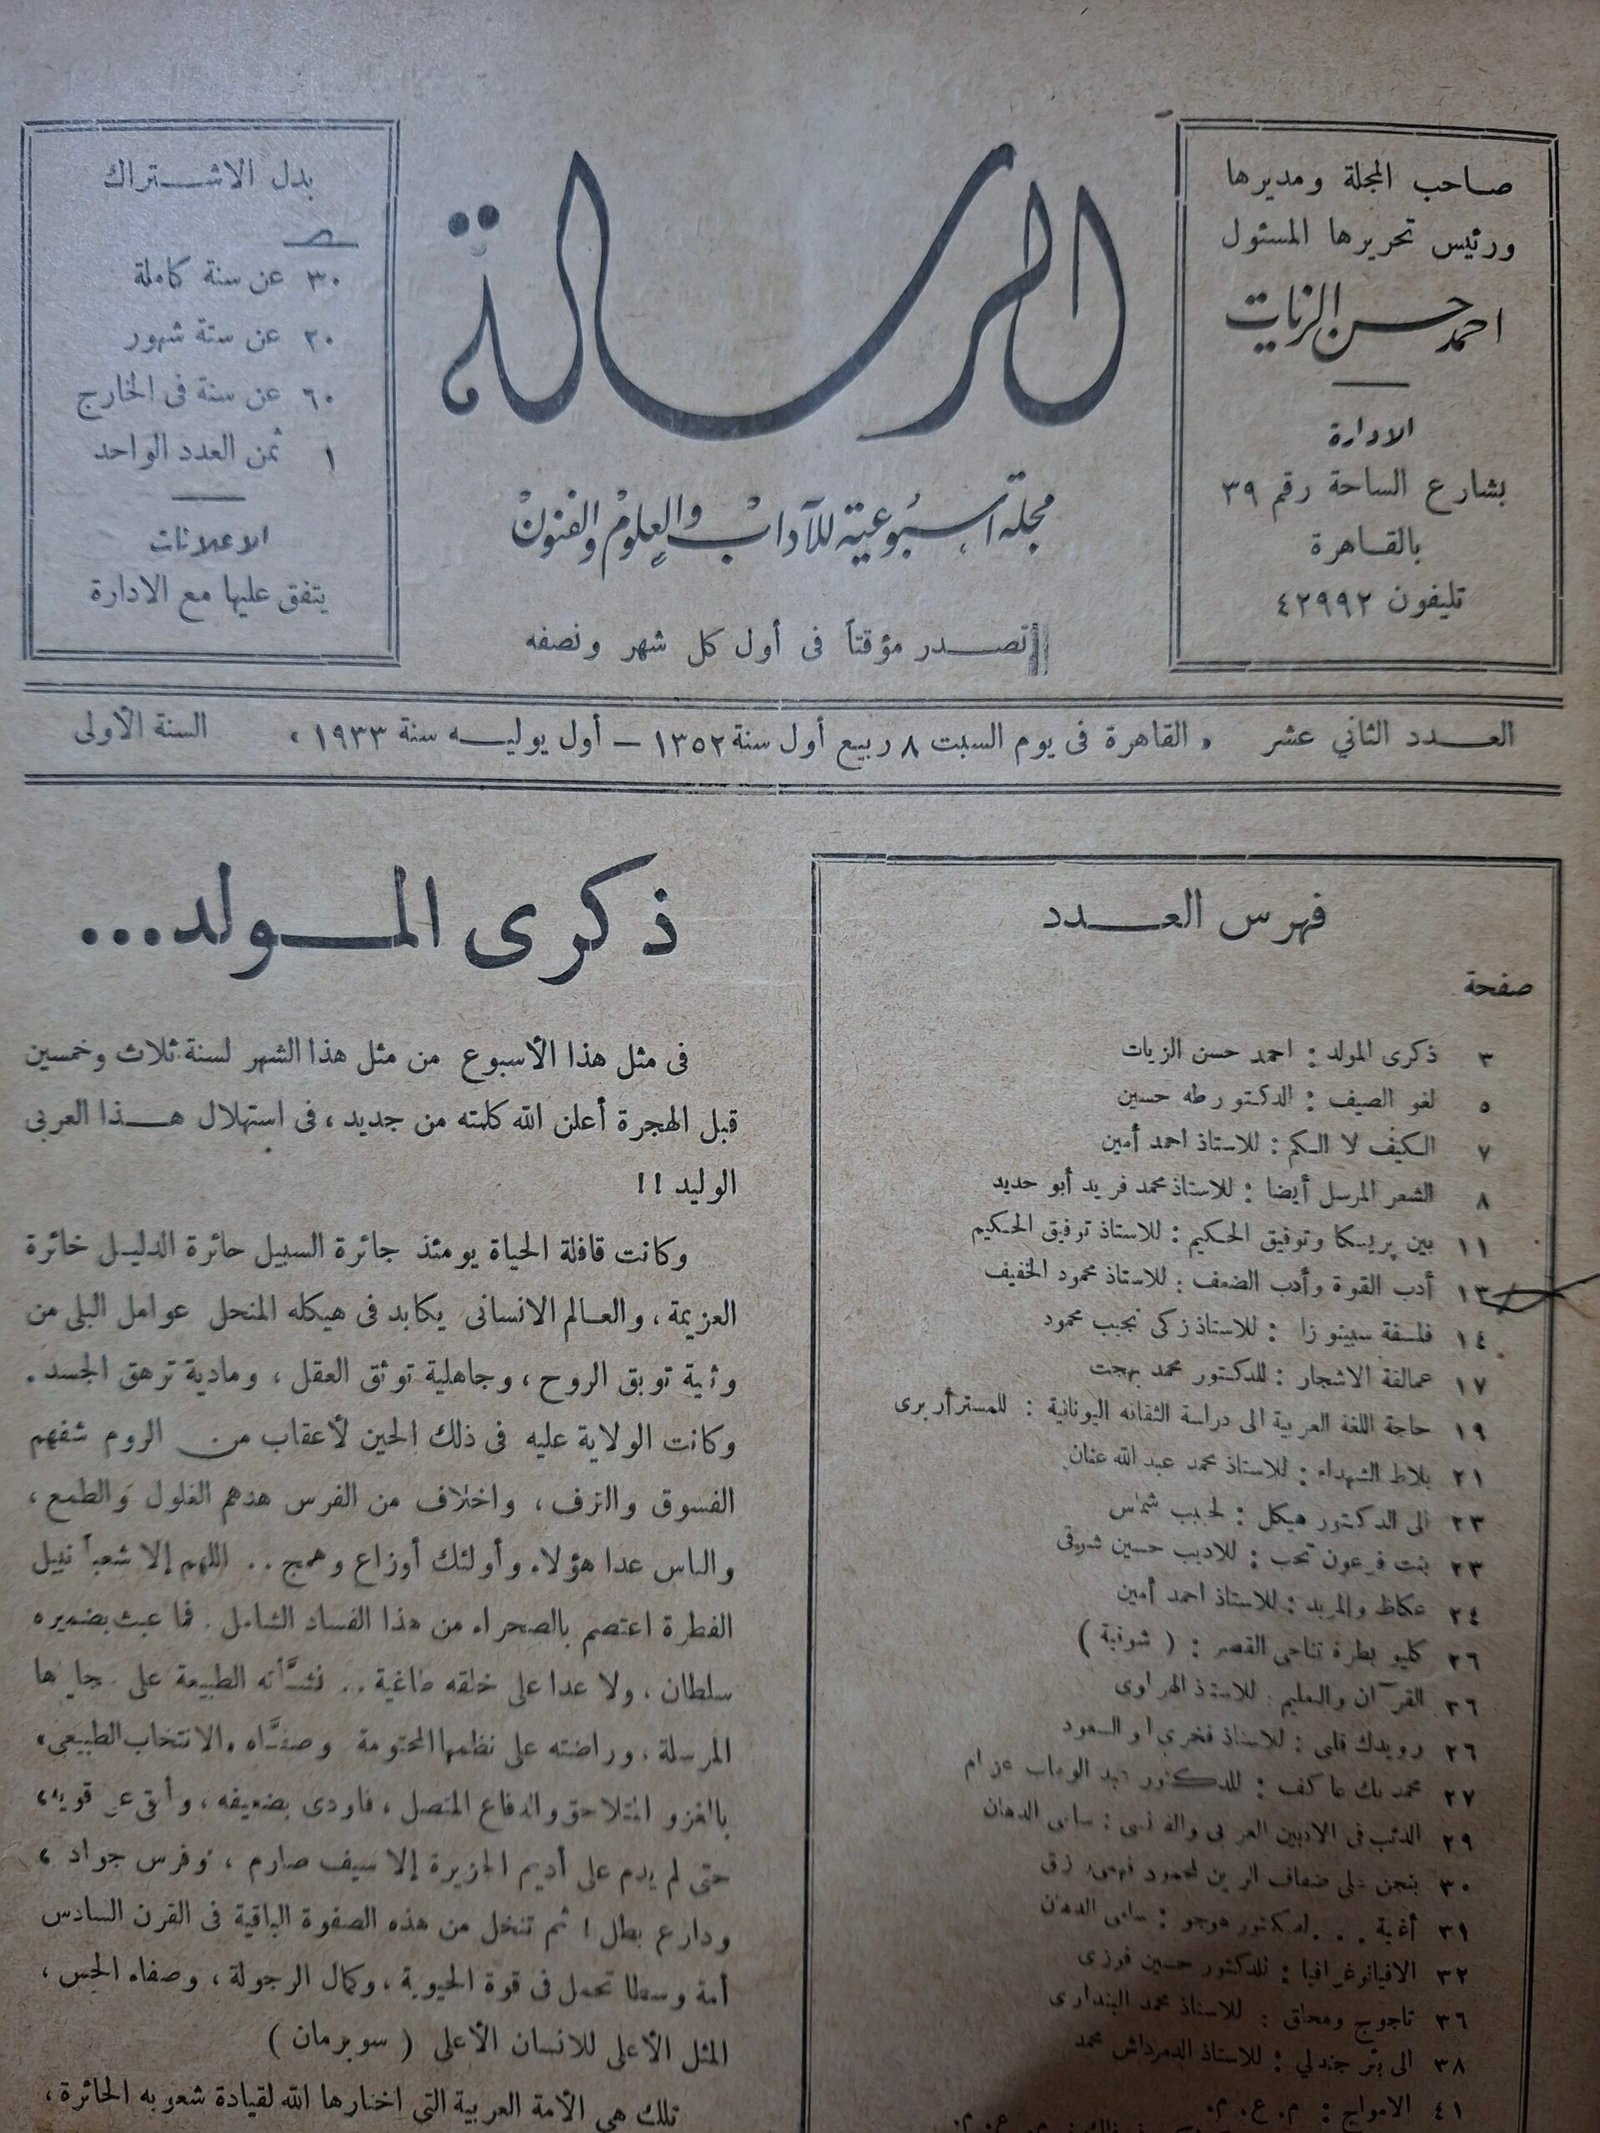 صاحب المجلة ومديرها
ورئيس تحريرها المسئول
احمد حسن الزيات
الادارة
بشارع الساحة رقم ٣٩
بالقاهرة
تليفون ٤٢٩٩٢
الرسالة
مجلة اسبوعية للآداب والعلوم والفنون
تصدر مؤقتاً فى أول كل شهر ونصفه
بدل الاشتراك
٣٠ عن سنة كاملة
٢٠ عن ستة شهور
٦٠ عن سنة فى الخارج
١ ثمن العدد الواحد
الاعلانات
يتفق عليها مع الادارة
العدد الثاني عشر « القاهرة فى يوم السبت ٨ ربيع أول سنة ١٣٥٢ — أول يوليه سنة ١٩٣٣ » السنة الأولى
فهرس العدد
صفحة
٣ ذكرى المولد : احمد حسن الزيات
٥ لغو الصيف : الدكتور طه حسين
٧ الكيف لا الكم : للاستاذ احمد أمين
٨ الشعر المرسل أيضا : للاستاذ محمد فريد أبو حديد
١١ بين پريسكا وتوفيق الحكيم : للاستاذ توفيق الحكيم
١٣ أدب القوة وأدب الضعف : للاستاذ محمود الخفيف
١٤ فلسفة سبينوزا : للاستاذ زكى نجيب محمود
١٧ عمالقة الاشجار : للدكتور محمد بهجت
١٩ حاجة اللغة العربية الى دراسة الثقافة اليونانية : للمستر أربرى
٢١ بلاط الشهداء : للاستاذ محمد عبد الله عنان
٢٣ الى الدكتور هيكل : لحبيب شماس
٢٣ بنت فرعون تحب : للاديب حسين شوقى
٢٤ عكاظ والمربد : للاستاذ احمد أمين
٢٦ كليوبطرة تناجى القصر : ( شوقية )
٢٦ القرآن والتعليم : للاستاذ الهراوى
٢٦ رويدك قلبى : للاستاذ فخري ابو السعود
٢٧ محمد بك عاكف : للدكتور عبد الوهاب عزام
٢٩ الذئب فى الادبين العربى والفرنسى : سامى الدهان
٣٠ على ضفاف الرين لمحمود فهمى رزق
٣١ أغنية . . . لفيكتور هوجو : سامى الدهان
٣٢ الاقيانوغرافيا : للدكتور حسين فوزى
٣٦ تاجوج ومحلق : للاستاذ محمد البندارى
٣٨ الى بئر جندلي : للاستاذ الدمرداش محمد
٤١ الامواج : م . ع . م .
ذكرى المولد ...
فى مثل هذا الأسبوع من مثل هذا الشهر لسنة ثلاث وخمسين
قبل الهجرة أعلن الله كلمته من جديد ، فى استهلال هذا العربى
الوليد !!
وكانت قافلة الحياة يومئذ جائرة السبيل حائرة الدليل خائرة
العزيمة ، والعالم الانسانى يكابد فى هيكله المنحل عوامل البلى من
وثنية توبق الروح ، وجاهلية توثق العقل ، ومادية ترهق الجسد .
وكانت الولاية عليه فى ذلك الحين لأعقاب من الروم شفهم
الفسوق والترف ، واخلاف من الفرس هدهم الغلول والطمع ،
والناس عدا هؤلاء وأولئك أوزاع وهمج .. اللهم إلا شعباً نبيل
الفطرة اعتصم بالصحراء من هذا الفساد الشامل . فما عبث بضميره
سلطان ، ولا عدا على خلقه طاغية .. نشَّأته الطبيعة على
المرسلة ، وراضته على نظمها المحتومة وصفَّاه «الانتخاب الطبيعى»
بالغزو المتلاحق والدفاع المتصل ، فاودى بضعيفه ، وأبقى على قويه ،
حتى لم يدم على أديم الجزيرة إلا سيف صارم ، وفرس جواد ،
ودارع بطل ! ثم تنخل من هذه الصفوة الباقية فى القرن السادس
أمة وسطا تحمل فى قوة الحيوية ، وكمال الرجولة ، وصفاء الحس ،
المثل الأعلى للانسان الأعلى ( سوبرمان )
تلك هى الأمة العربية التى اختارها الله لقيادة شعوبه الحائرة ،